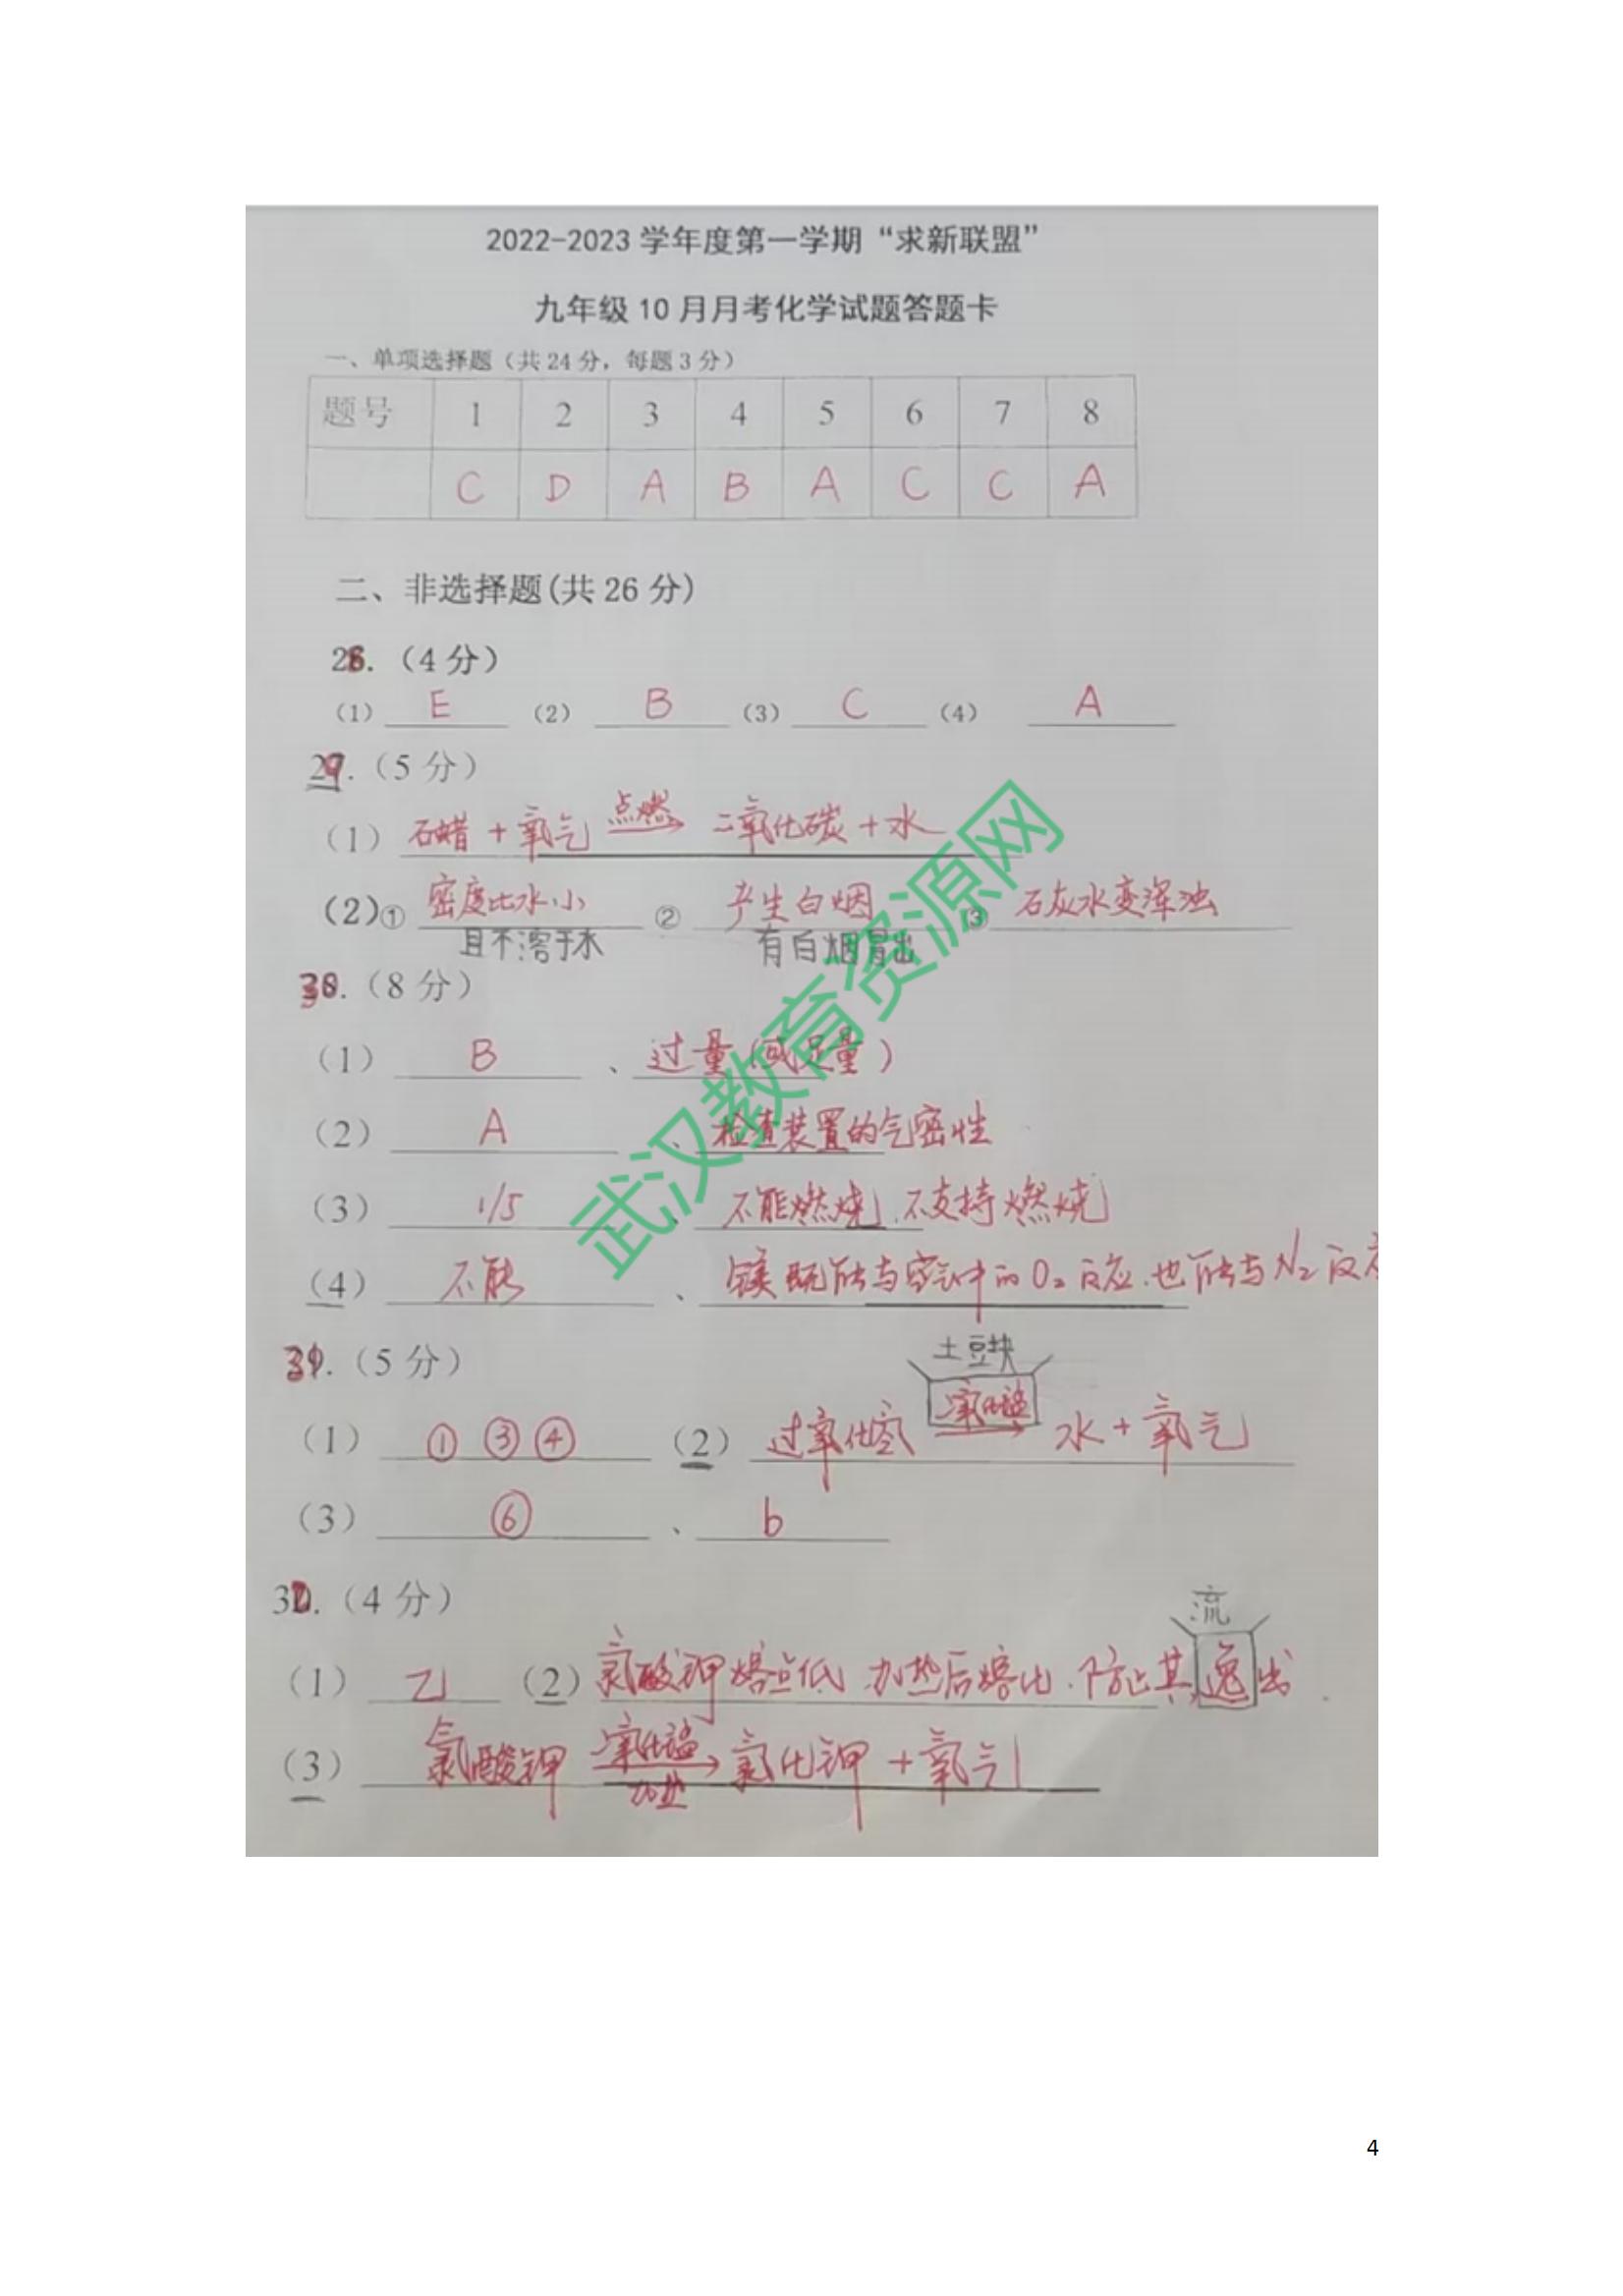 2022-2023 学年度第一学期“求新联盟”
九年级 10 月月考化学试题答题卡
一、单项选择题（共 24 分，每题 3 分）
题号 1 2 3 4 5 6 7 8
C D A B A C C A
二、非选择题(共 26 分)
28.（4 分）
（1） E （2） B （3） C （4） A
29.（5 分）
（1）石蜡 + 氧气 点燃→ 二氧化碳 + 水
（2）① 密度比水小 ② 产生白烟 ③ 石灰水变浑浊
且不溶于水 有白烟冒出
30.（8 分）
（1） B 、过量（或足量）
（2） A 、检查装置的气密性
（3） 1/5 、不能燃烧、不支持燃烧
（4） 不能 、镁既能与空气中的 O₂ 反应，也能与 N₂ 反应
31.（5 分）
土豆块
（1） ①③④ （2） 过氧化氢 二氧化锰→ 水 + 氧气
（3） ⑥ 、 b
32.（4 分）
流
（1） 乙 （2）氯酸钾熔点低，加热后熔化，防止其逸出
（3） 氯酸钾 二氧化锰→加热 氯化钾 + 氧气
武汉教育资源网
4